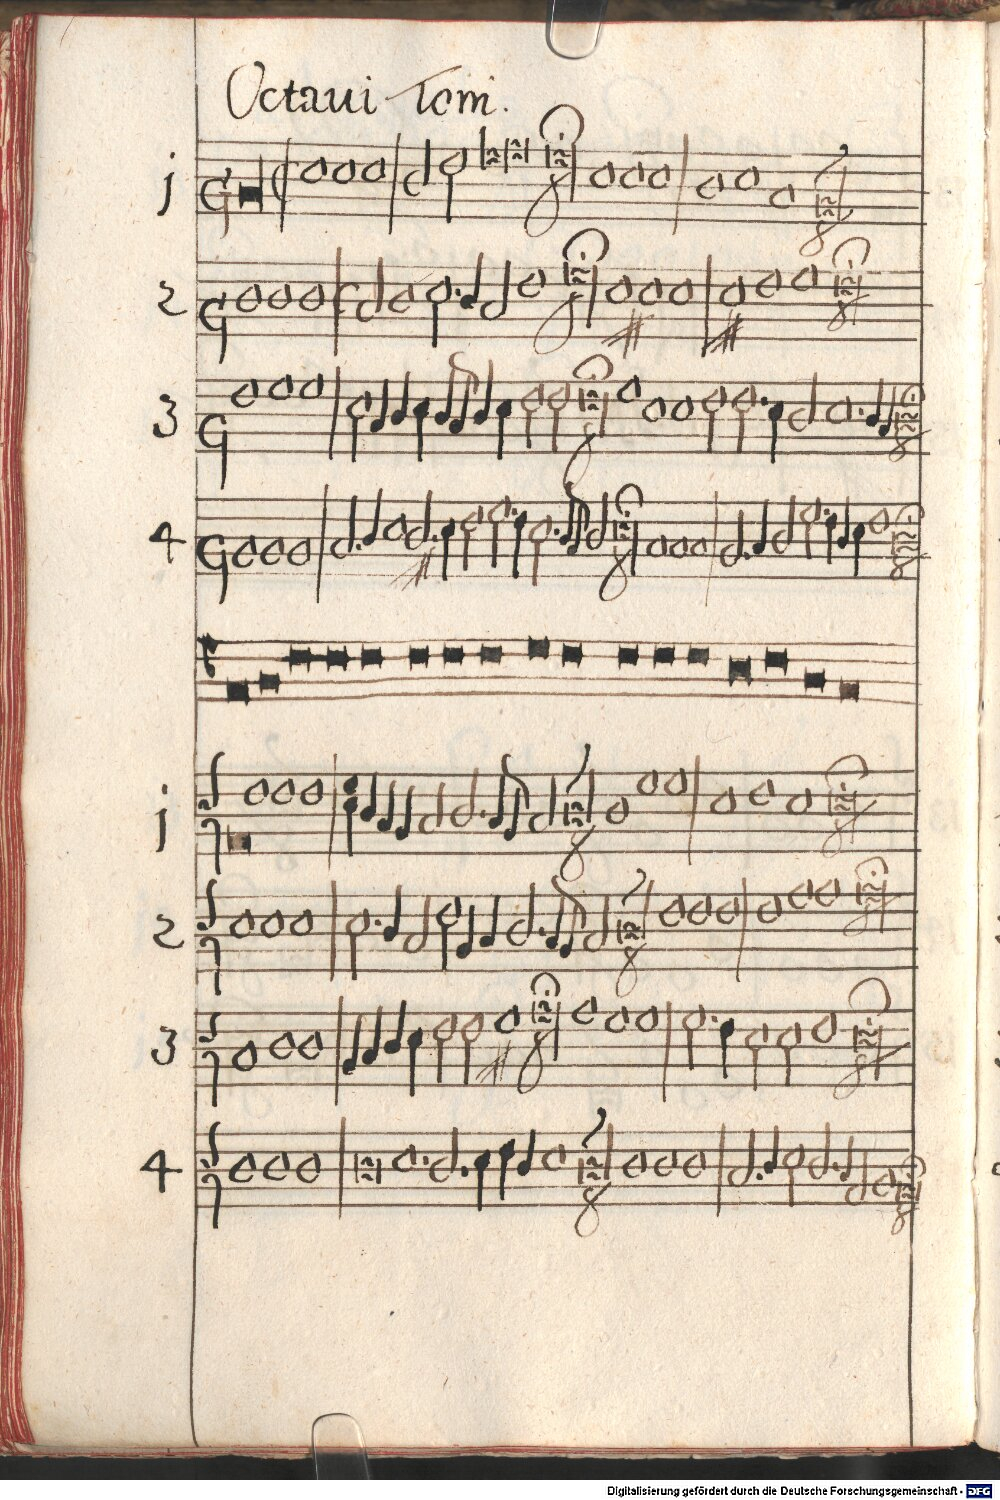 Octaui Toni.
j
2
3
4
j
2
3
4
Digitalisierung gefördert durch die Deutsche Forschungsgemeinschaft - DFG